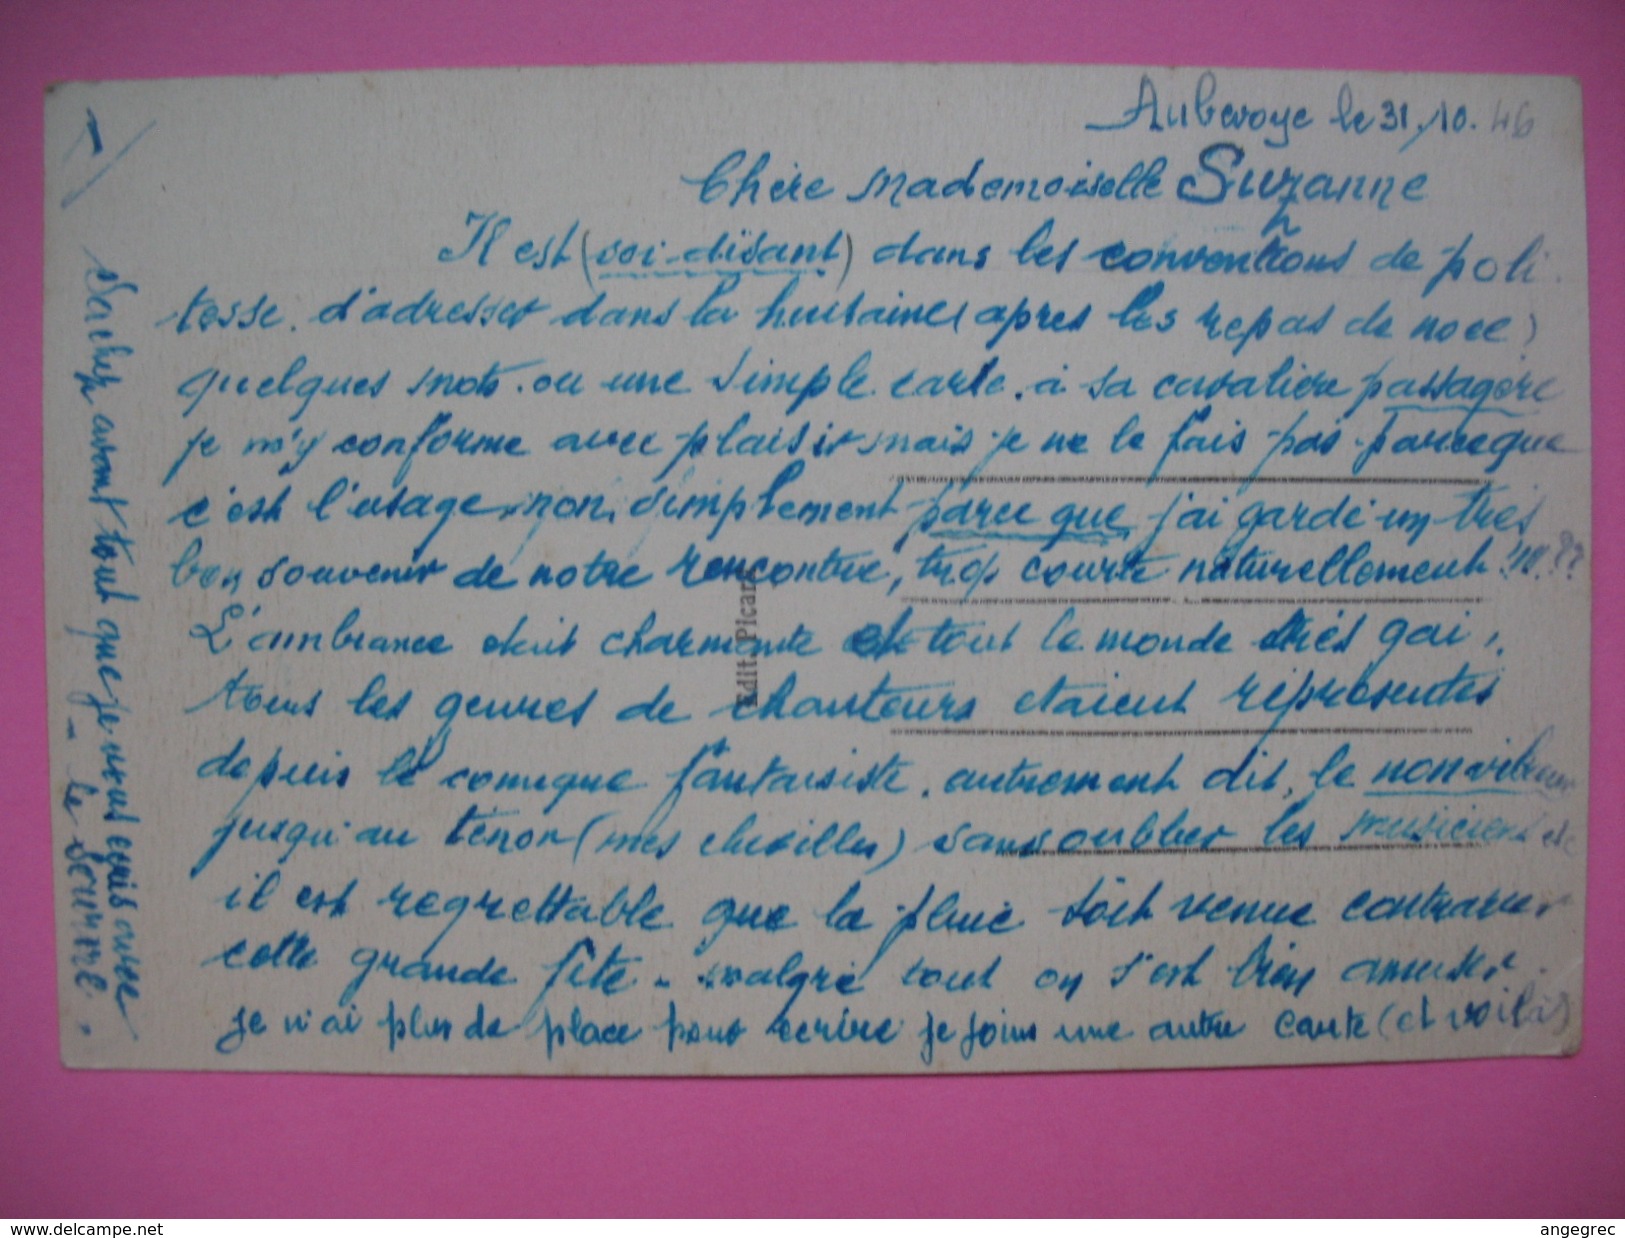 1/
Aubevoye le 31/10. 46
Chère Mademoiselle Suzanne
Il est (soi-disant) dans les conventions de poli
tesse. d'adresser dans la huitaine (apres les repas de noce)
quelques mots. ou une simple carte. à sa cavalière passagère
je m'y conforme avec plaisir mais je ne le fais pas parceque
c'est l'usage, non, simplement parce que j'ai gardé un très
bon souvenir de notre rencontre, trop courte naturellement !!!!??
L'ambiance était charmante et tout le monde très gai,
tous les genres de chanteurs etaient réprésentés
depuis le comique fantaisiste. autrement dit, le non vibreur
jusqu'au ténor (mes chevilles) sans oublier les musiciens etc
il est regrettable que la pluie soit venue contrarier
cette grande fête - malgré tout on s'est bien amuser.
je n'ai plus de place pour ecrire je joins une autre carte (et voilà)
Sachez avant tout que je vous ecris avec
- le Sourire.
Edit. Picard
www.delcampe.net
angegrec